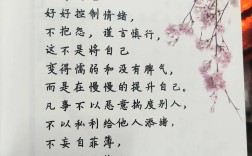 好好控制情绪,
不抱怨，谨言慎行,
这不是将自己
变得懦弱和没有脾气,
而是在慢慢的提升自己。
凡事不以恶意揣度别人,
不以私利给他人添堵,
不妄自菲薄,